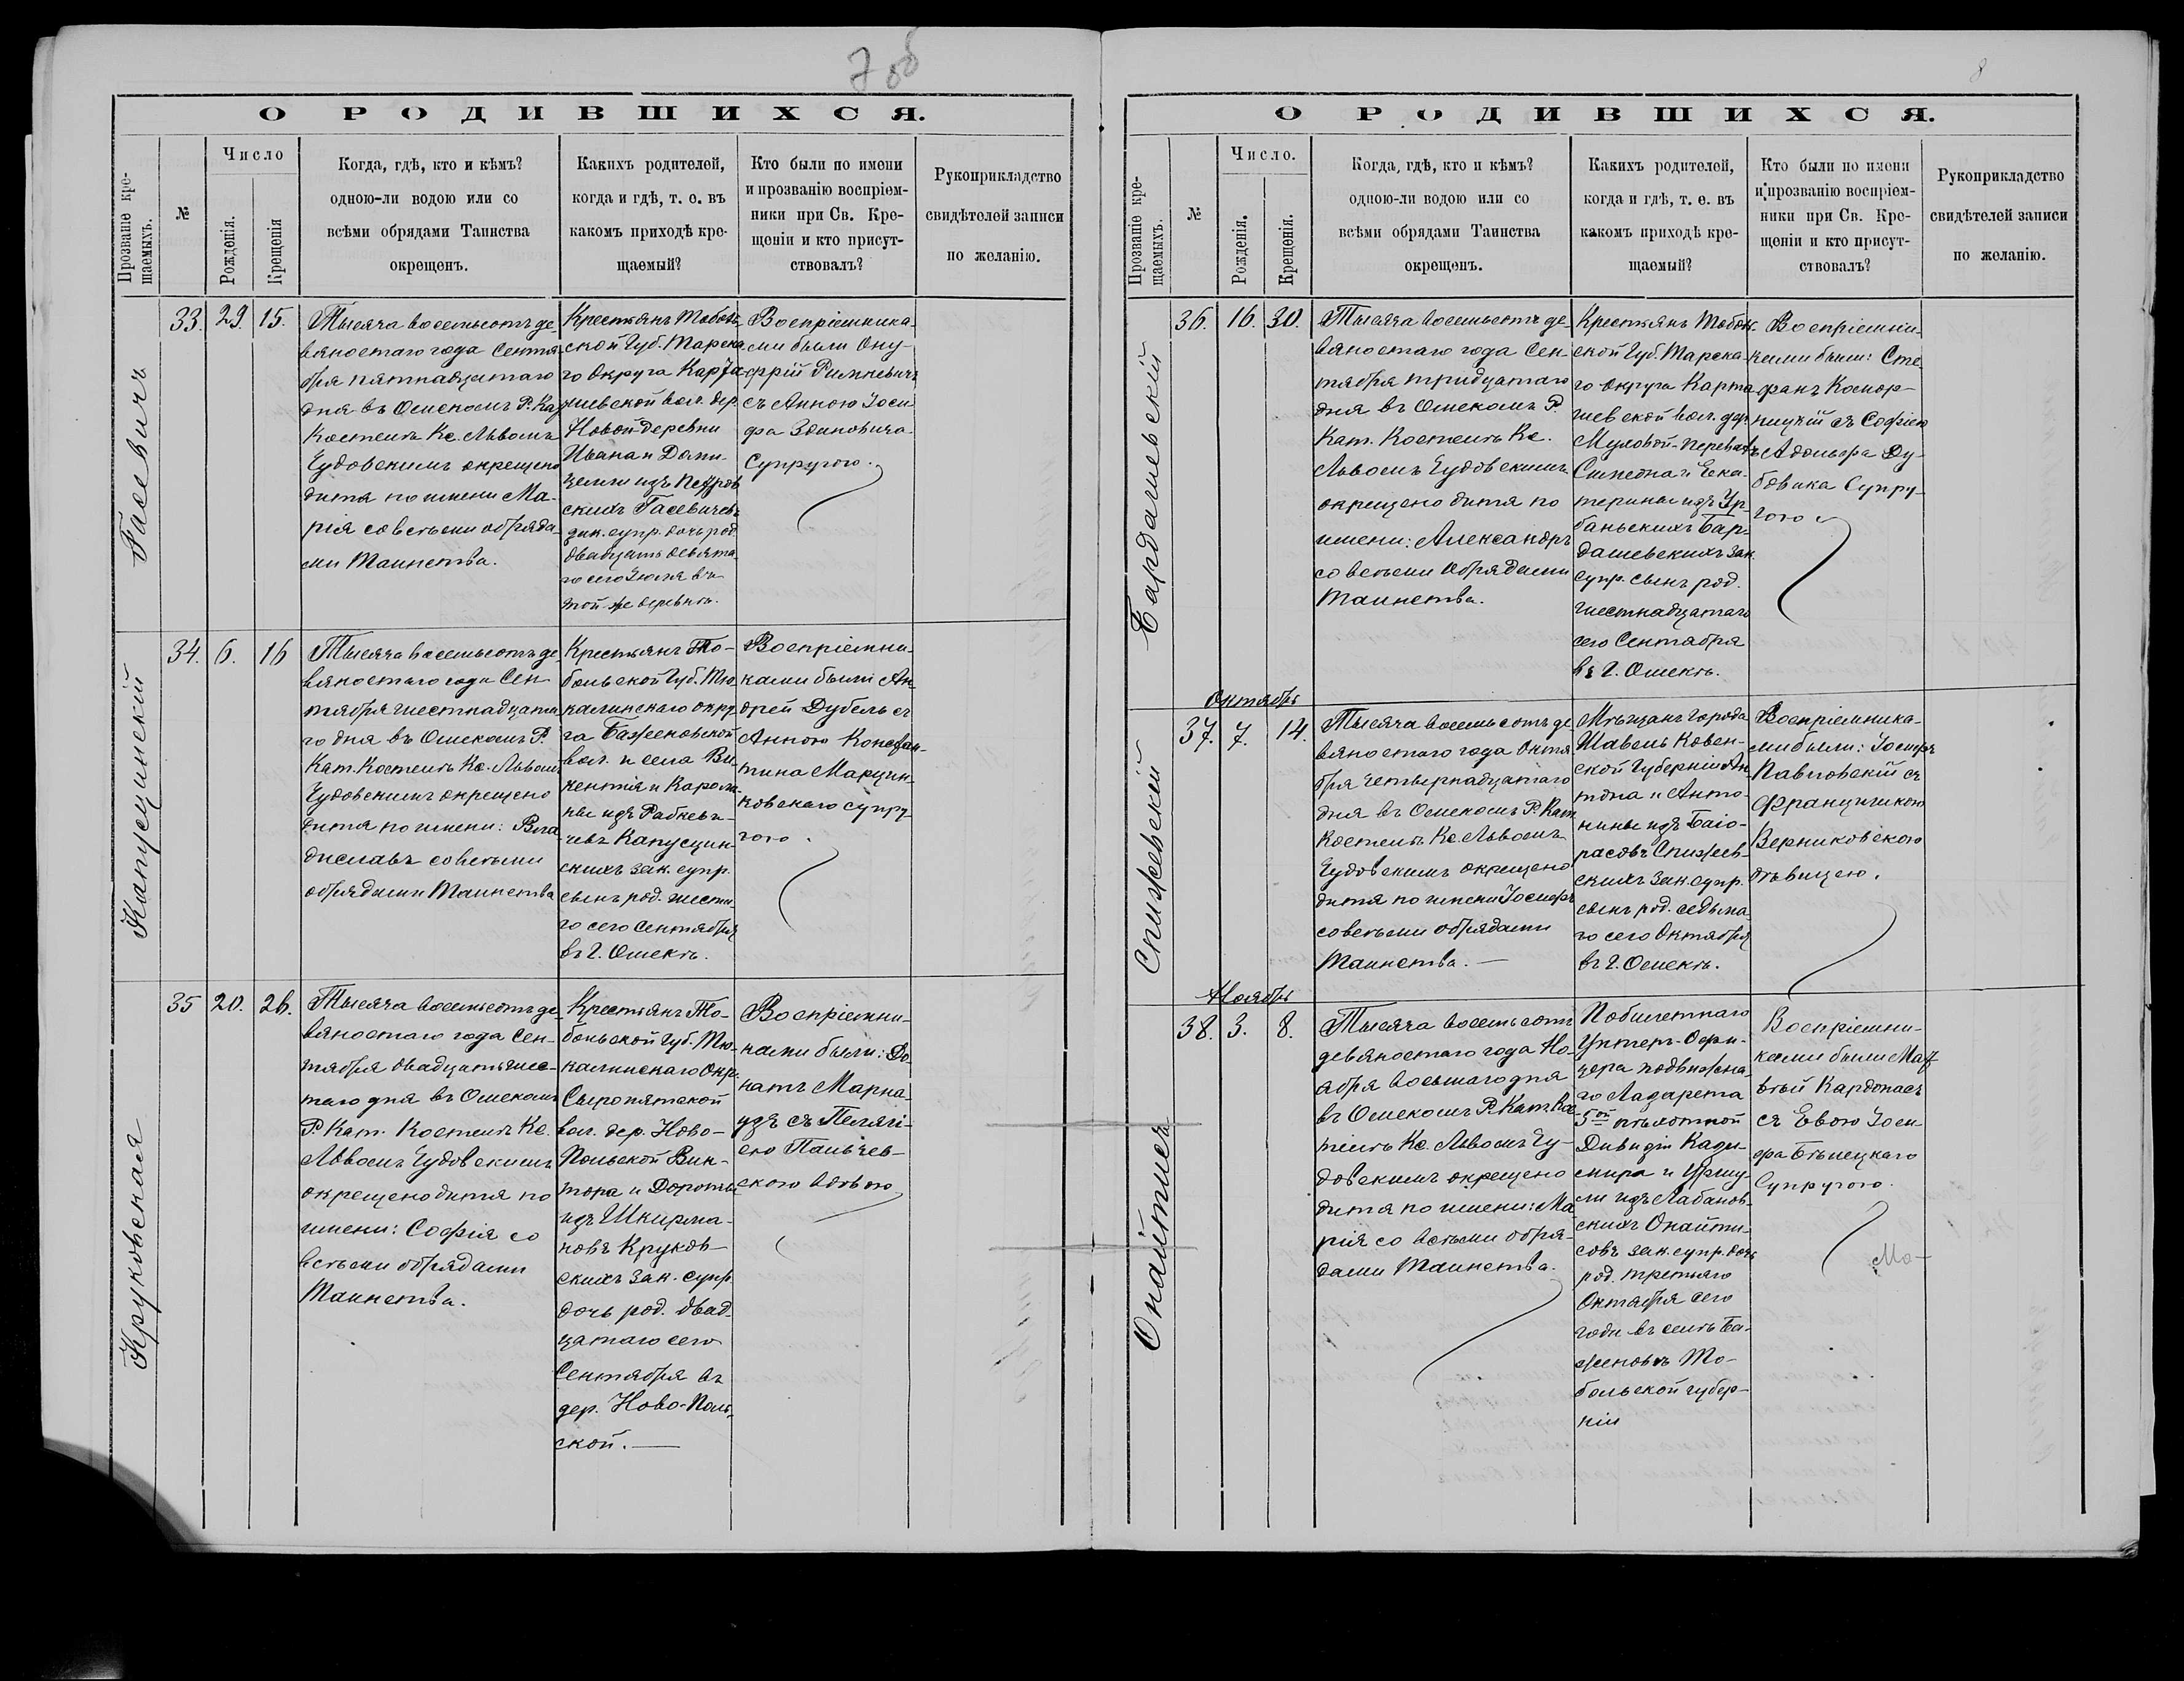 7 об
О РОДИВШИХСЯ.
Прозваніе кре-
щаемыхъ.
№
Число
Рожденія.
Крещенія
Когда, гдѣ, кто и кѣмъ?
одною-ли водою или со
всѣми обрядами Таинства
окрещенъ.
Какихъ родителей,
когда и гдѣ, т. е. въ
какомъ приходѣ кре-
щаемый?
Кто были по имени
и прозванію воспріем-
ники при Св. Кре-
щеніи и кто присут-
ствовалъ?
Рукоприкладство
свидѣтелей записи
по желанію.
Гасевичъ
33. 29. 15.
Тысяча восемьсотъ де-
вяностаго года Сентя-
бря пятнадцатаго
дня въ Омскомъ Р. Ка.
Костелѣ Кс. Львомъ
Чудовскимъ окрещено
дитя по имени Ма-
рія со всѣми обряда-
ми Таинства.
Крестьянъ Тоболь-
ской Губ. Тарска-
го Округа
вол. дер.
Новой-деревни
Ивана и Доми-
цели изъ
скихъ Гасевичевъ
зак. супр. дочь род.
двадцать девята-
го сего въ
той-же деревнѣ.
Воспріемника-
ми были Ону-
фрій Римкевичъ
съ Анною Іоси-
фа Здановича
Супругою.
Капусцинскій
34. 6. 16
Тысяча восемьсотъ де-
вяностаго года Сен-
тября шестнадцата-
го дня въ Омскомъ Р.
Кат. Костелѣ Кс. Львомъ
Чудовскимъ окрещено
дитя по имени: Вла-
диславъ со всѣми
обрядами Таинства
Крестьянъ То-
больской Губ. Тю-
калинскаго окру-
га Баженовской
вол. и села Ви-
кентія и Кароли-
ны изъ
чевъ Капусцин-
скихъ зак. супр.
сынъ род. шеста-
го сего Сентября
въ г. Омскѣ.
Воспріемни-
ками были Ан-
дрей Дубель съ
Анною Констан-
тина Марцин-
ковскаго супру-
гою.
Круковская
35 20. 26.
Тысяча восемьсотъ де-
вяностаго года Сен-
тября двадцать шес-
таго дня въ Омскомъ
Р. Кат. Костелѣ Кс.
Львомъ Чудовскимъ
окрещено дитя по
имени: Софія со
всѣми обрядами
Таинства.
Крестьянъ То-
больской Губ. Тю-
калинскаго Окр.
Сыропятской
вол. дер. Ново-
Польской Вик-
тора и Дороты
изъ Шкирма-
новъ Круков-
скихъ зак. супр.
дочь род. двад-
цатаго сего
Сентября въ
дер. Ново-Поль-
ской.
Воспріемни-
ками были: До-
натъ Марна-
узъ съ Пеляги-
ею Пальчев-
скою вдовою
8
О РОДИВШИХСЯ.
Прозваніе кре-
щаемыхъ.
№
Число.
Рожденія.
Крещенія.
Когда, гдѣ, кто и кѣмъ?
одною-ли водою или со
всѣми обрядами Таинства
окрещенъ.
Какихъ родителей,
когда и гдѣ, т. е. въ
какомъ приходѣ кре-
щаемый?
Кто были по имени
и прозванію воспріем-
ники при Св. Кре-
щеніи и кто присут-
ствовалъ?
Рукоприкладство
свидѣтелей записи
по желанію.
Бардашевскій
36. 16. 30.
Тысяча восемьсотъ де-
вяностаго года Сен-
тября тридцатаго
дня въ Омскомъ Р.
Кат. Костелѣ Кс.
Львомъ Чудовскимъ
окрещено дитя по
имени: Александръ
со всѣми обрядами
Таинства.
Крестьянъ Тоболь-
ской Губ. Тарска-
го округа Карта-
шевской вол. дер.
Симеона и Ека-
терины изъ Ур-
баньскихъ Бар-
дашевскихъ зак.
супр. сынъ род.
шестнадцатаго
сего Сентября
въ г. Омскѣ.
Воспріемни-
ками были: Сте-
фанъ Комор-
ницкій съ Софіею
Адольфа Ду-
бовика Супру-
гою
Октябрь
Спижевскій
37. 7. 14.
Тысяча восемьсотъ де-
вяностаго года Октя-
бря четырнадцатаго
дня въ Омскомъ Р. Кат.
Костелѣ Кс. Львомъ
Чудовскимъ окрещено
дитя по имени Іосифъ
со всѣми обрядами
Таинства.
Мѣщанъ города
Шавель Ковен-
ской Губерніи Ан-
тона и Анто-
нины изъ Баіо-
расовъ Спижев-
скихъ зак. супр.
сынъ род. седьма-
го сего Октября
въ г. Омскѣ.
Воспріемника-
ми были: Іосифъ
Павловскій съ
Францишкою
Верниковскою
дѣвицею.
Ноябрь
Окайтисъ
38. 3. 8.
Тысяча восемьсотъ
девяностаго года Но-
ября восьмаго дня
въ Омскомъ Р. Кат. Кос-
телѣ Кс. Львомъ Чу-
довскимъ окрещено
дитя по имени: Ма-
рія со всѣми обря-
дами Таинства.
Побилетнаго
Унтеръ-Офи-
цера подвижна-
го Лазарета
5ой пѣхотной
Дивизіи Кази-
мира и Уршу-
ли изъ Лабанов-
скихъ Окайти-
совъ зак. супр. дочь
род. третьяго
Октября сего
года въ селѣ Ба-
женовѣ То-
больской губер-
ніи
Воспріемни-
ками были Мат-
вѣй Кардопасъ
съ Евою Іоси-
фа Бѣлецкаго
Супругою.
Мо-